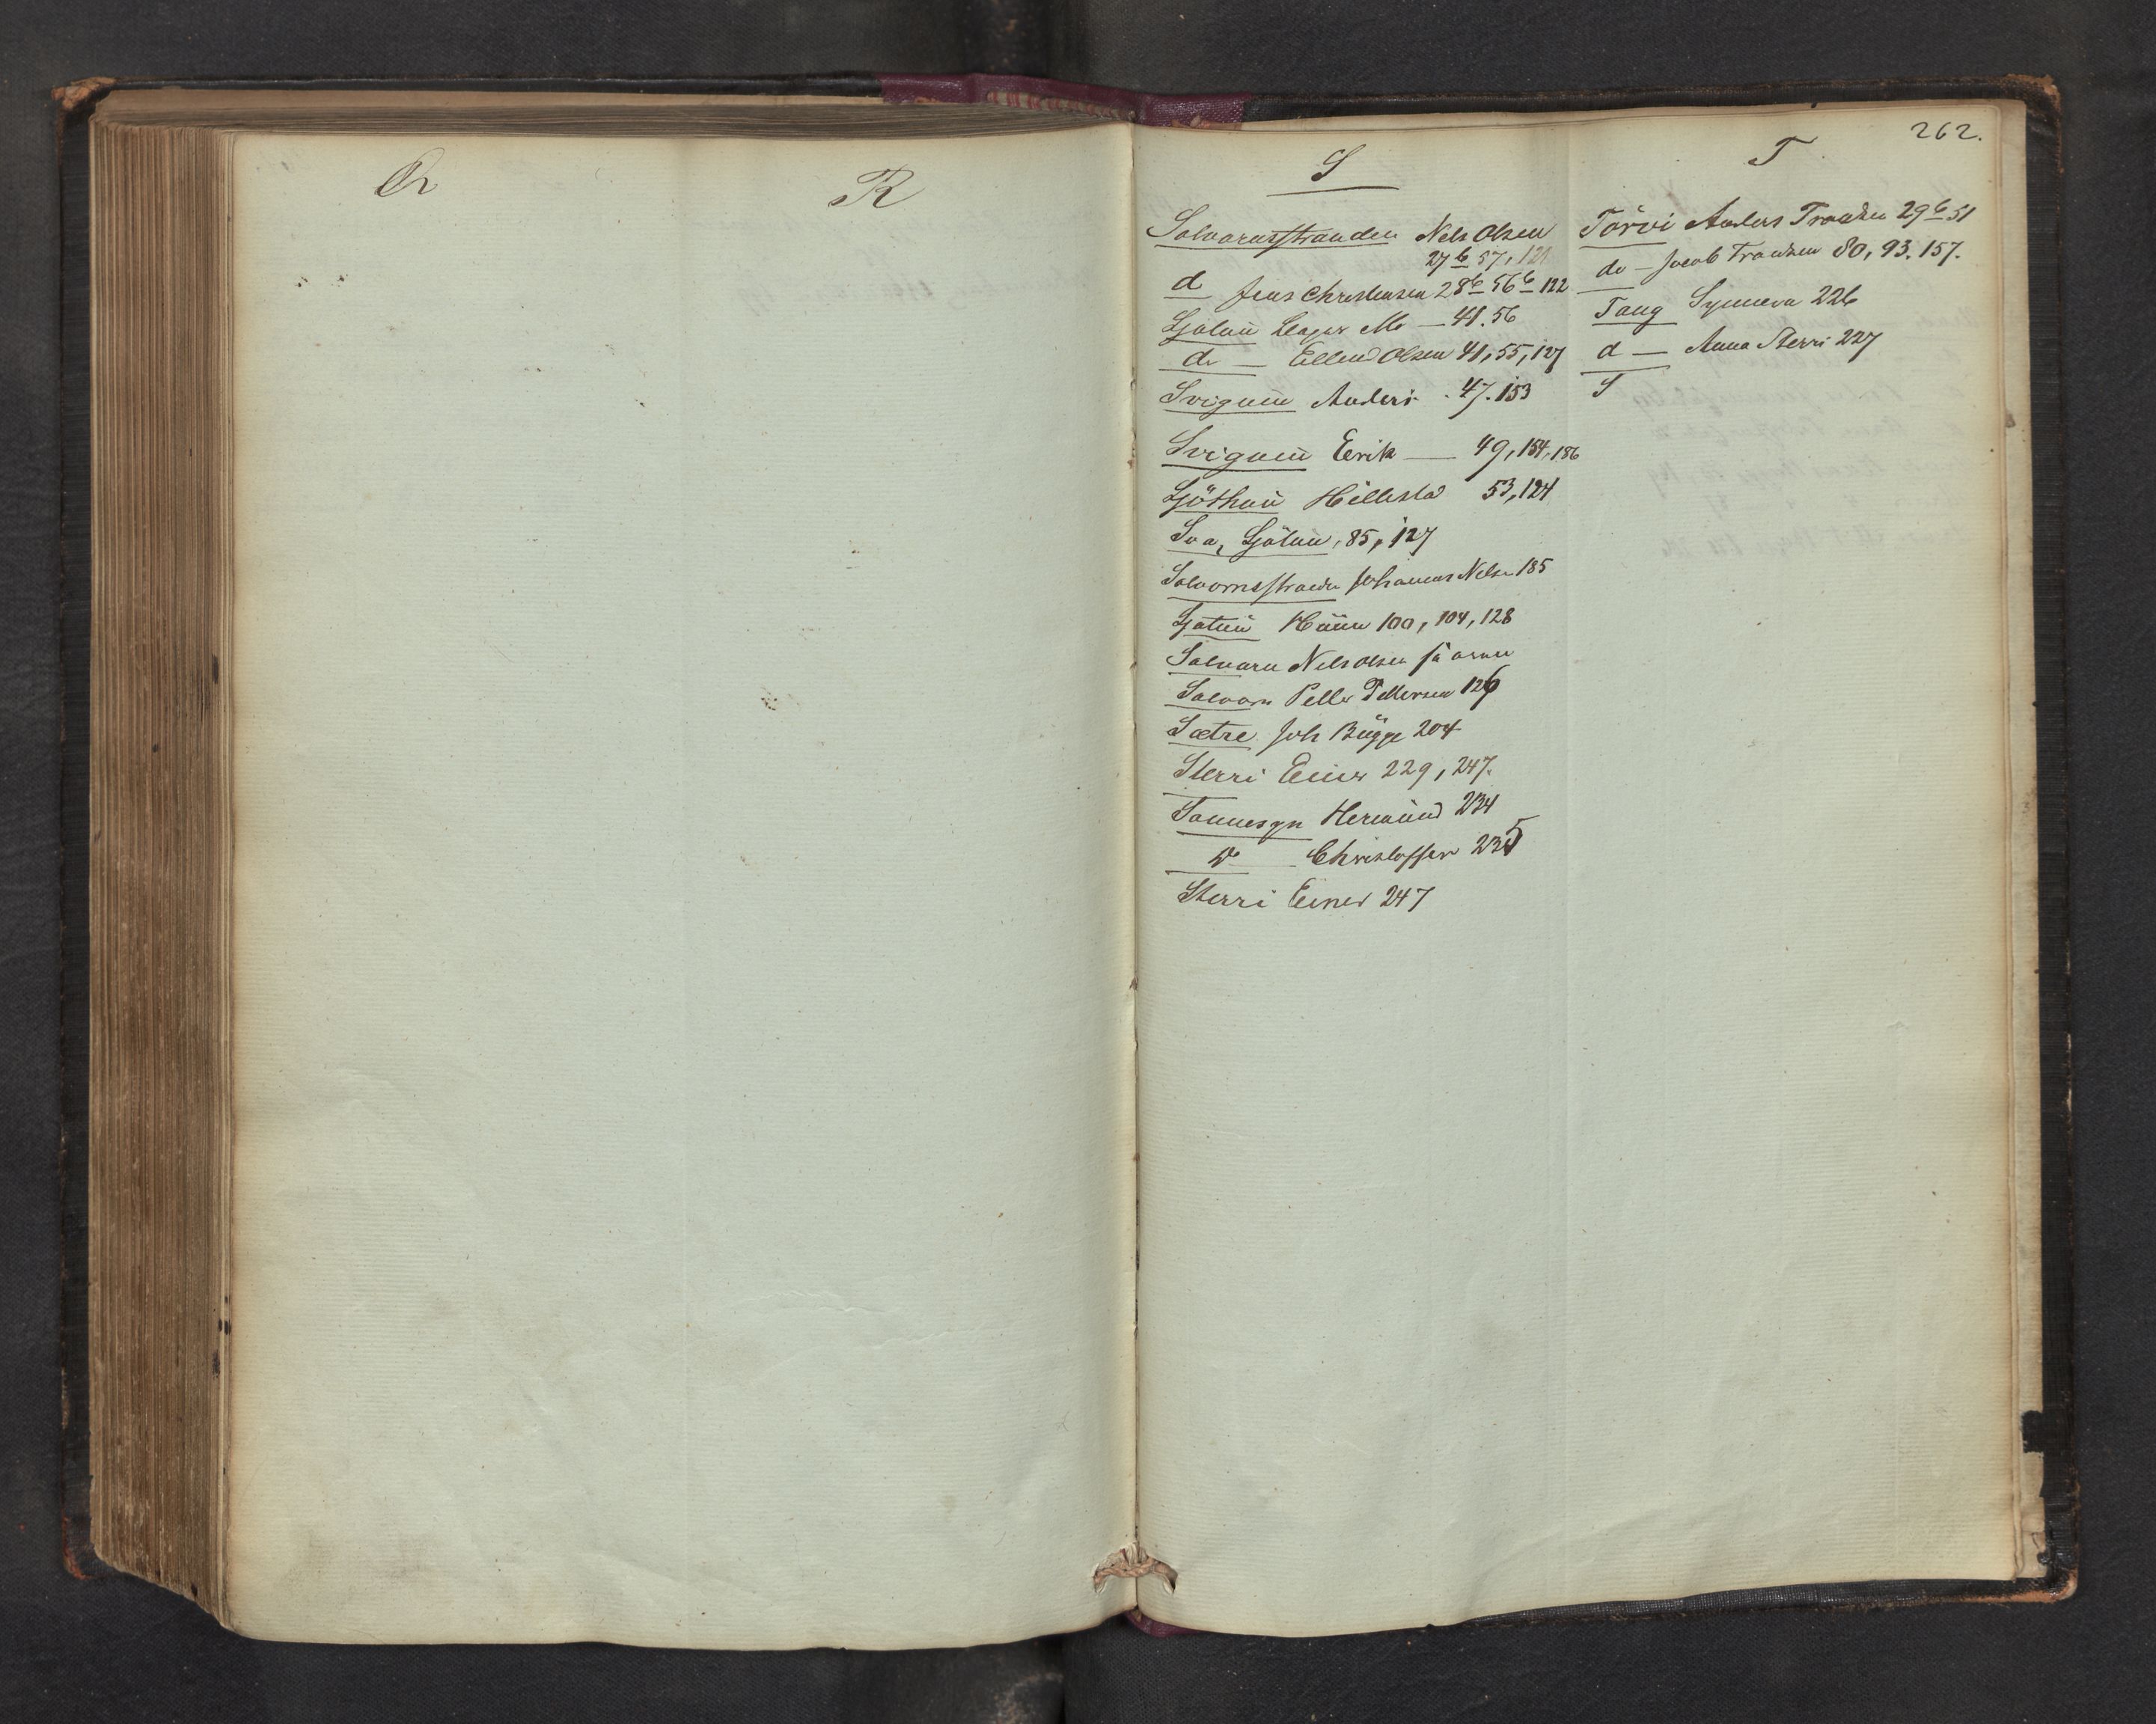 Q
R
262.
S
Solvornsstranden Nels Olsen
27 b 57, 121
d Jens Christensen 28 b 56 b 122
Sjøtun Lasse Mo — 41. 56
do — Ellend Olsen 41, 55, 127
Svigum Anders . 47. 153
Svigum Eerik — 49, 154, 186
Sjöthun Hillestad 53, 124
Sva, Sjötun, 85, 127
Solvornsstranden Johannes Nelsen 185
Sjøtun 100, 104, 128
Solvorn Nels Olsen
Solvorn Petter Pettersen 126
Sætre Joh Bügge 204
Sterri Einer 229, 247.
Sonnesyn Hermünd 234
do Christoffer 235
Sterri Einer 247
T
Törvi Anders Trondsen 29 b 51
do — Jacob Trondsen 80, 93. 157.
Taug Synneva 226
d — Anna Sterri 227
S